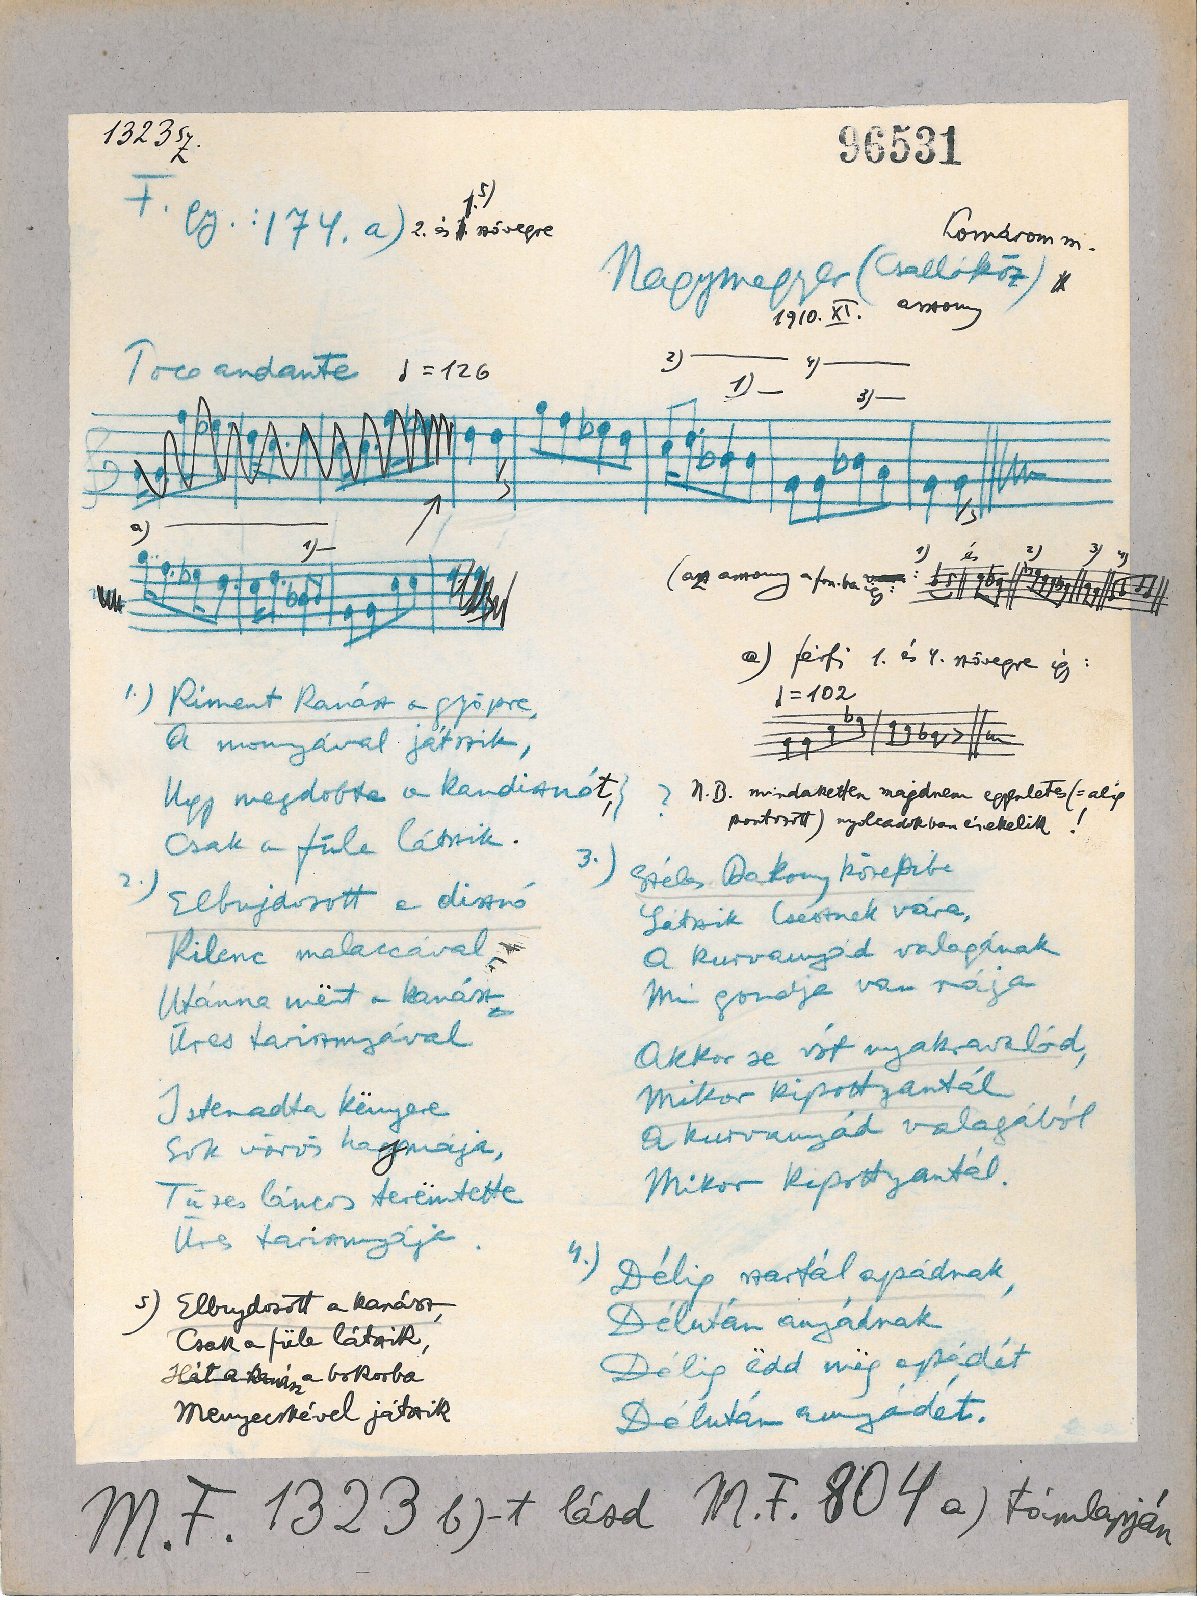 1323 sz.
96531
F. gy.: 174. a) 2. és 1. 5) szövegre
Komárom m.
Nagymegyer (Csallóköz)
1910. XI. asszony
Poco andante ♩ = 126
2) 4)
1) 3)
a)
1)
(az asszony a fon.-ba így: 1) és 2) 3) 4)
a) férfi 1. és 4. szövegre így:
♩ = 102
N.B. mindaketten majdnem egyenletes (= alig
pontozott) nyolcadokban éneklik!
1.) Kiment kanász a gyöpre,
A monyával játszik,
Ugy megdobta a kandisznót, ?
Csak a füle látszik.
2.) Elbujdosott a disznó
Kilenc malaccával,
Utánna mënt a kanász
Üres tarisznyával
Istenadta kënyere
Sok vörös hagymája,
Tüzes láncos terëmtette
Üres tarisznyája.
5) Elbujdosott a kanász,
Csak a füle látszik,
Hát a kanász a bokorba
Menyecskével játszik
3.) Széles Bakony közepibe
Látszik Csesznek vára,
A kurvanyád valagának
Mi gondja van rája
Akkor se vót nyakravalód,
Mikor kipottyantál
A kurvanyád valagából
Mikor kipottyantál.
4.) Délig szartál apádnak,
Délután anyádnak
Délig ëdd mëg apádét
Délután anyádét.
M.F. 1323 b)-t lásd M.F. 804 a) támlapján